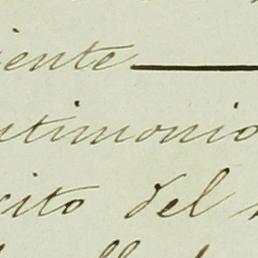 iente
ntimonio
cito del